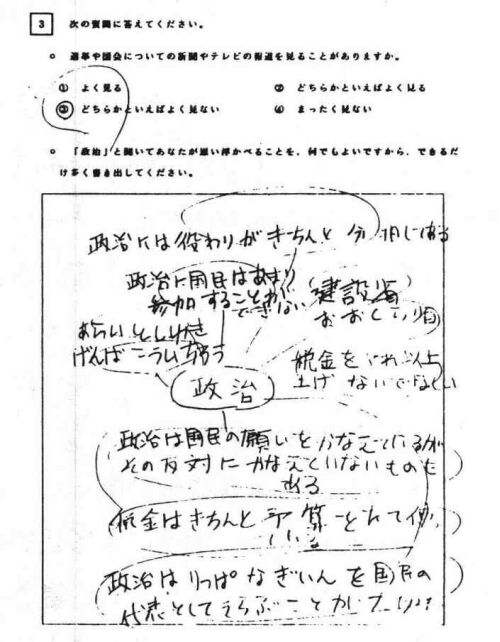 3 次の質問に答えてください。
○ 選挙や国会についての新聞やテレビの報道を見ることがありますか。
① よく見る ② どちらかといえばよく見る
③ どちらかといえばよく見ない ④ まったく見ない
○ 「政治」と聞いてあなたが思い浮かべることを，何でもよいですから，できるだ
け多く書き出してください。
政治には役わりがきちんと
政治に国民はあまり
参加することが
できない
建設省
税金をこれ以上
上げないでほしい
政治
政治は国民の願いをかなえているが
その反対にかなえていないものも
ある
税金はきちんと予算
政治はりっぱなぎいんを国民の
代表としてえらぶこと